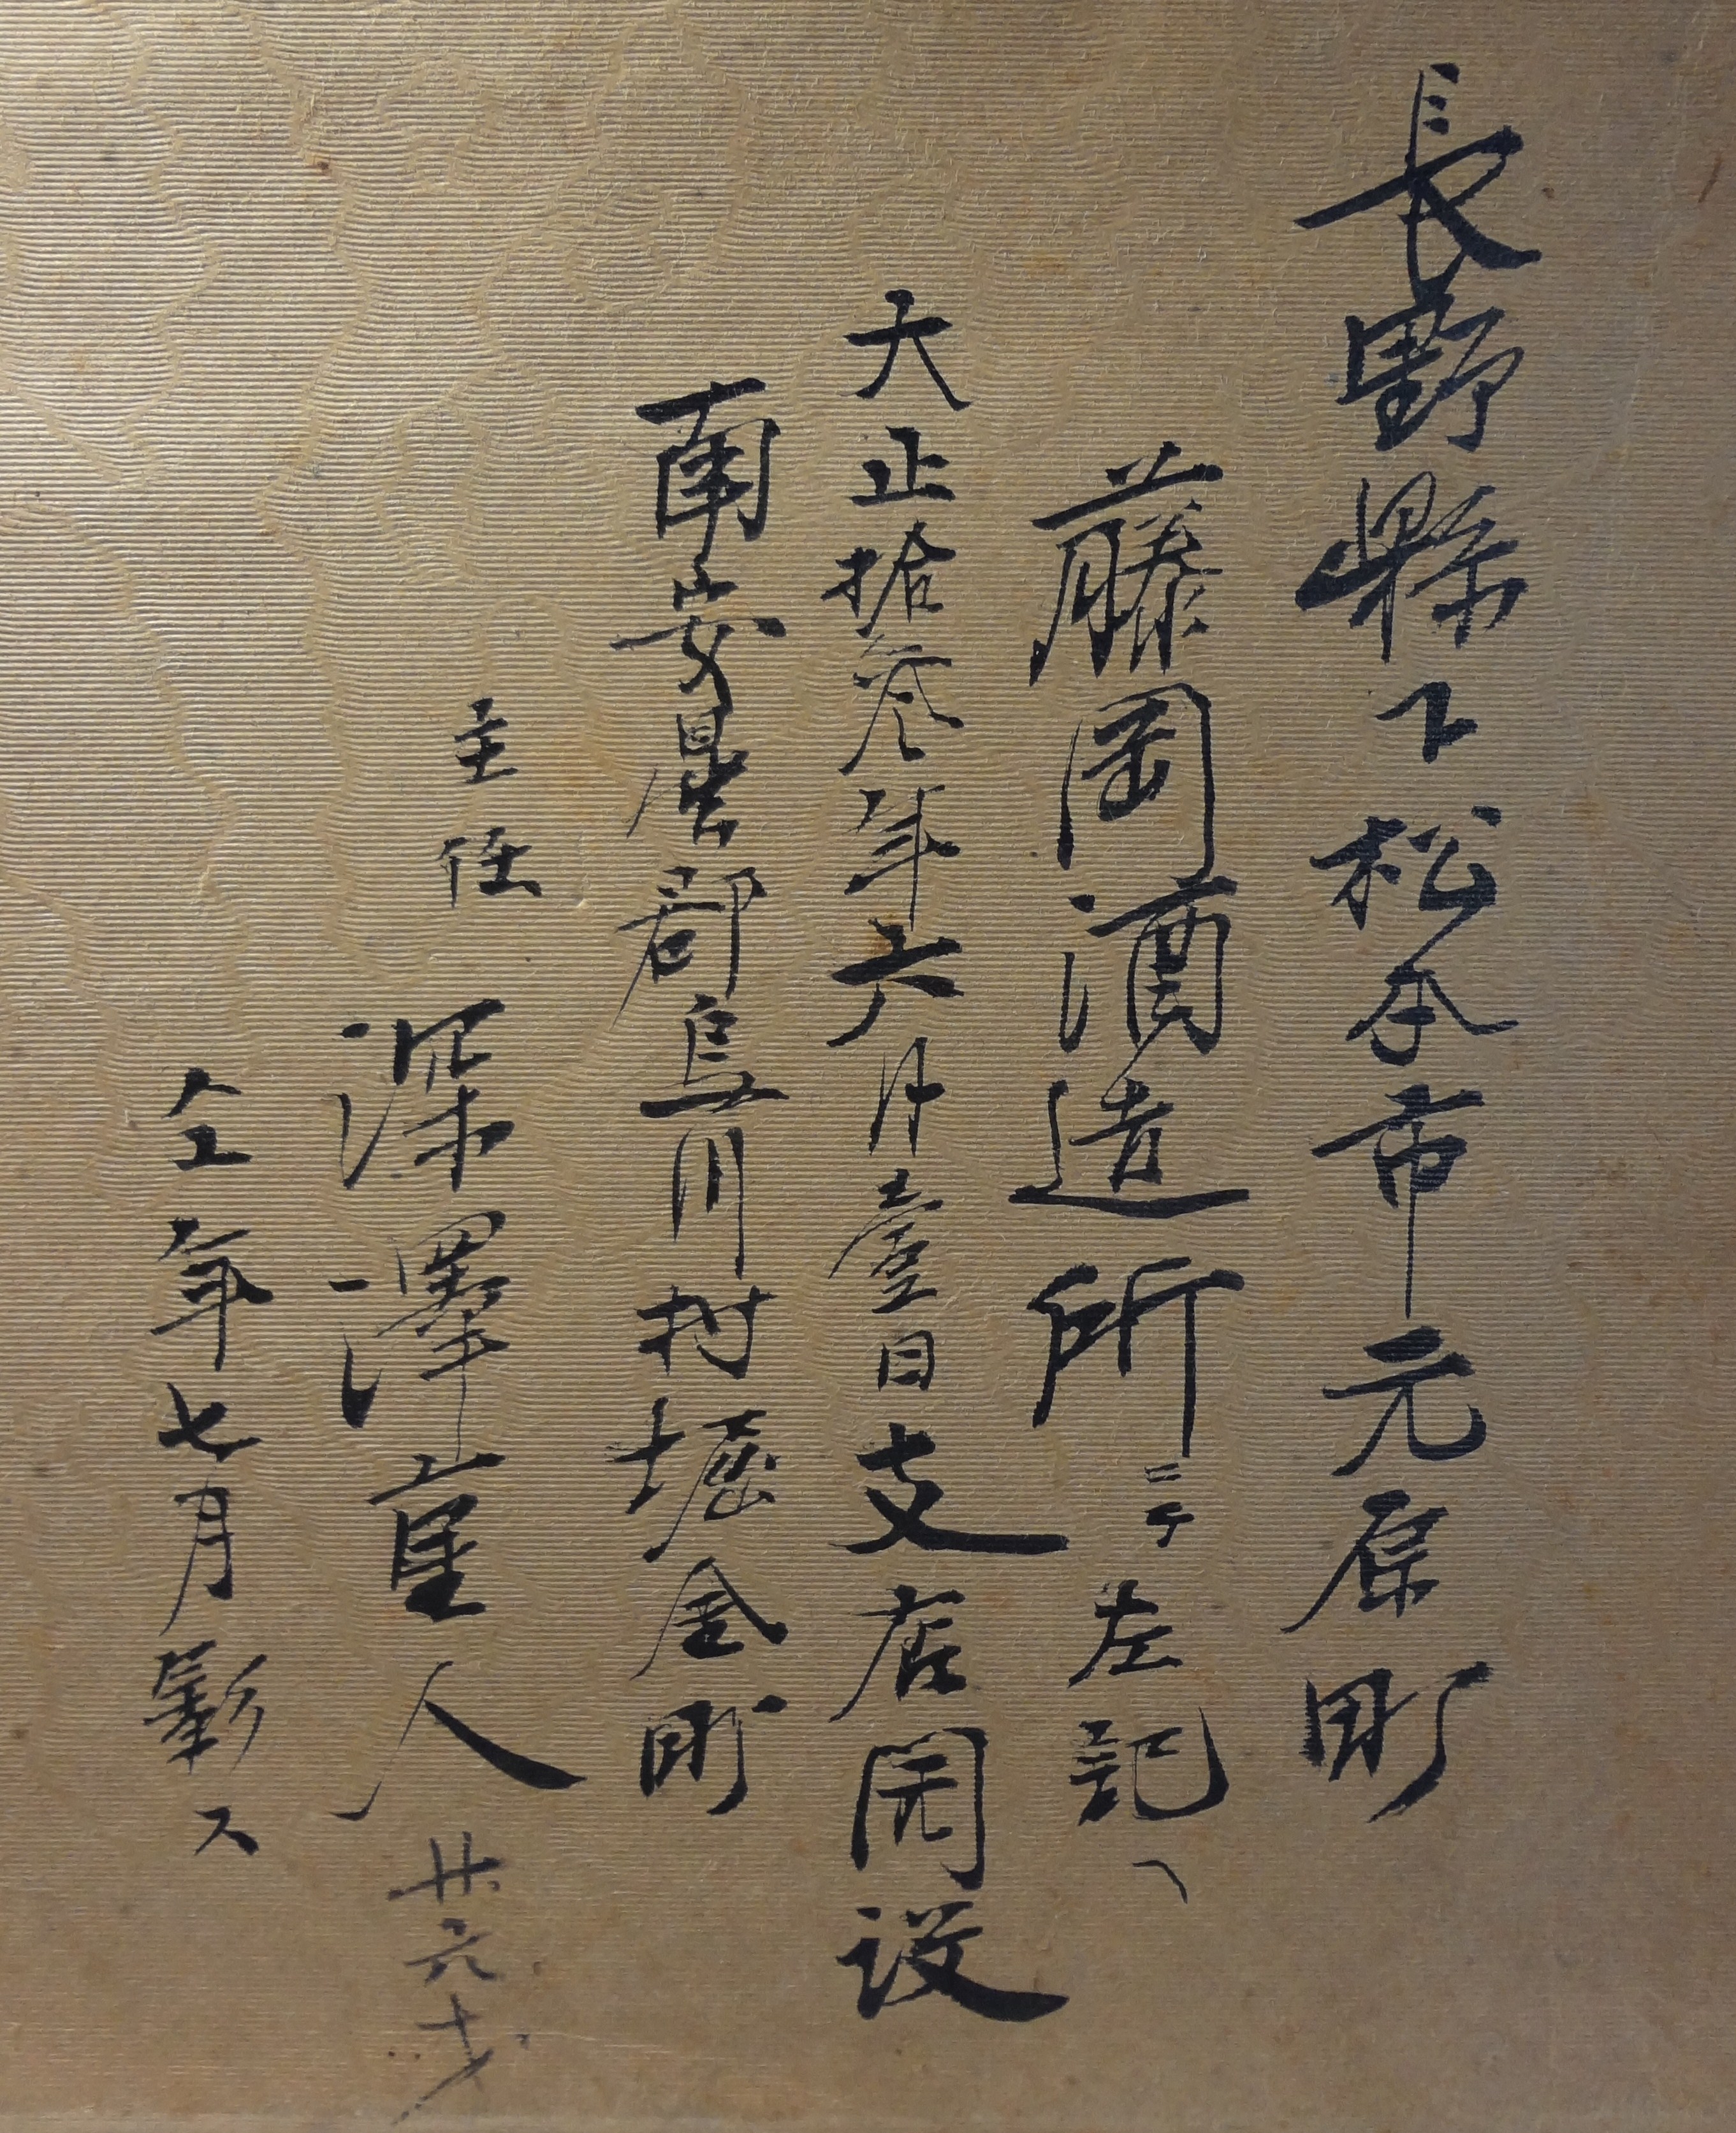 長野縣下松本市元原町
藤岡酒造所ニテ左記ヘ
大正拾参年六月壹日支店開設
南安曇郡烏川村堀金町
主任 深澤重人 廿六才
仝年七月影ス